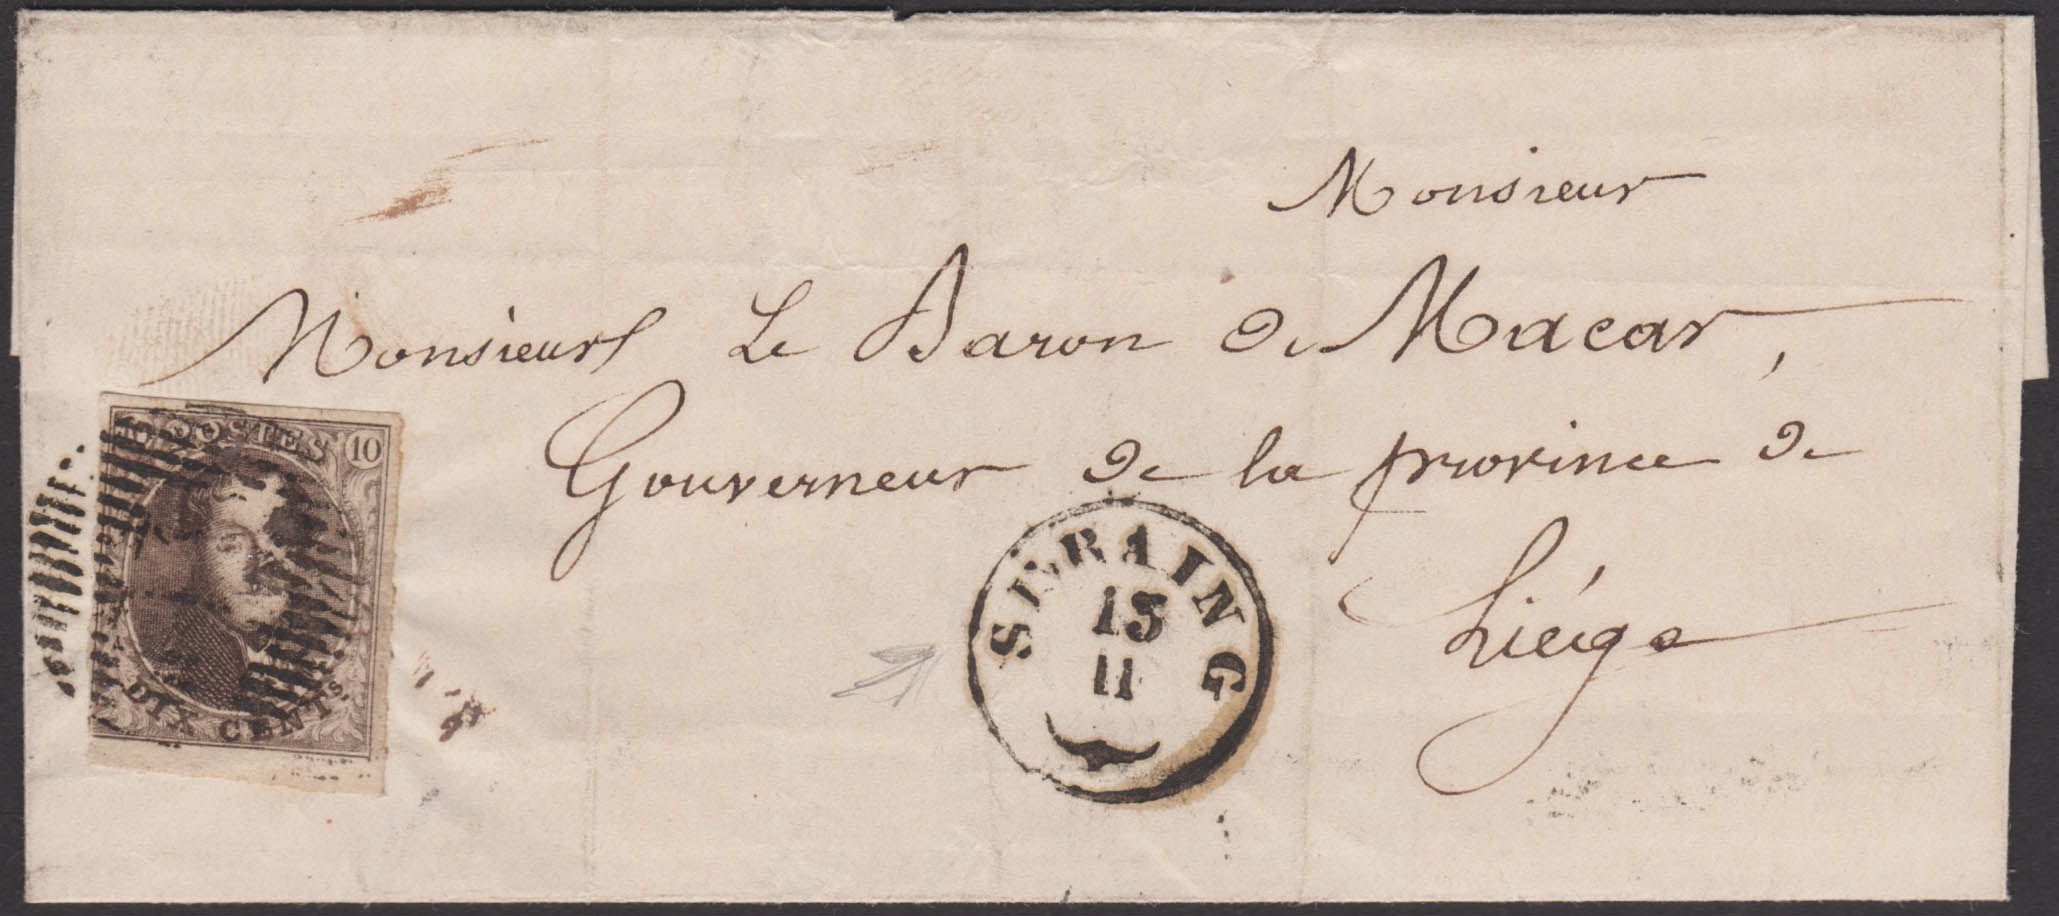 Monsieur
Monsieur Le Baron de Macar,
Gouverneur de la province de
Liége
POSTES 10
DIX CENTS
SERAING
15
11